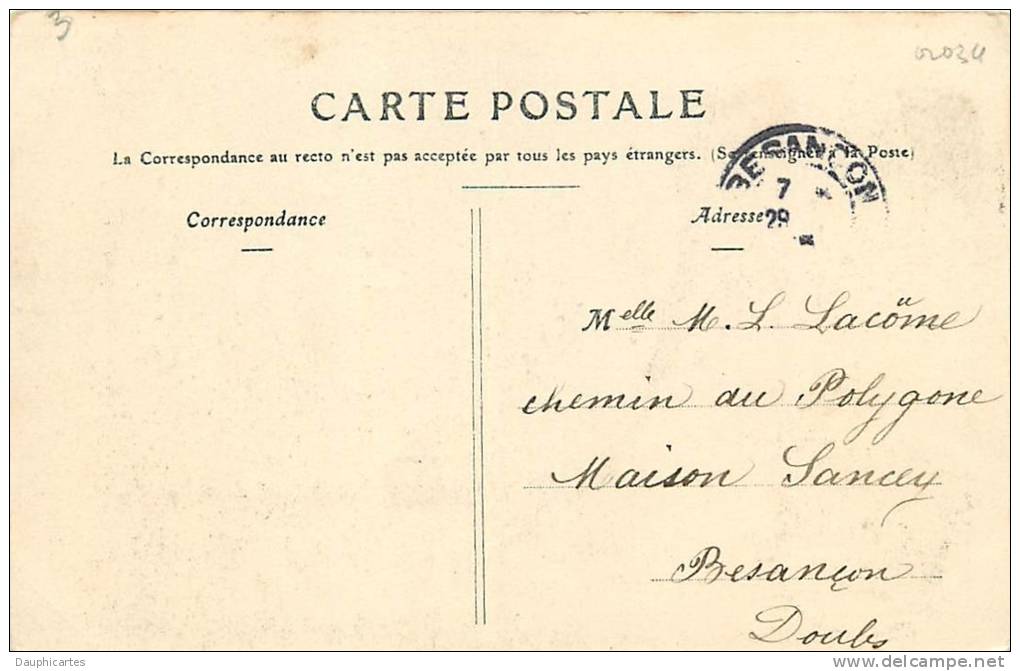 3
02034
CARTE POSTALE
La Correspondance au recto n'est pas acceptée par tous les pays étrangers. (Se renseigner à la Poste)
BESANÇON
7
29
Correspondance
Adresse
Melle M. L. Lacôme
chemin du Polygone
Maison Sancey
Besançon
Doubs
Dauphicartes
delcampe.net